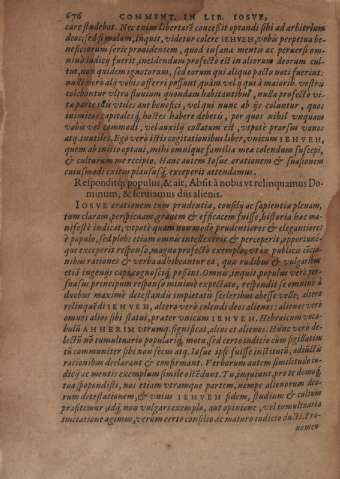 676 COMMENT. IN LIB. IOSVE,
care studebat. Nec enim libertatē concessit optandi sibi ad arbitrium
deos; sed si malum, inquit, videtur colere IEHVEH, verbū perpetua be-
neficiorum serie providentem, quod insana mentis ac perversi om-
nino iudicij fuerit, ineundum profectò est in aliorum deorum cul-
tum, non quidem ignotorum, sed eorum qui aliquo pacto noti fuerint.
nulli verò alij vobis offerri possunt quàm vel quos à maioribus vestris
colebantur vltra fluuium quondam habitantibus, nulla profectò vi-
ta parte sui vtiles aut benefici, vel qui nunc ab ijs coluntur, quos
inimicos capitalesq́; hostes habere debetis, per quos nihil vnquam
vobis vel commodi, vel auxilij collatum est, vtpote prorsus vanos
atq́; inutiles. Ego verò istis cogitationibus liber, vnicum IEHVEH,
quem ab initio optaui, mihi omniq́ue familiæ meæ colendum suscepi,
& culturum me recipio. Hanc autem Iosue orationem & suasionem
cuiusmodi exitus plaususq́; exceperit attendamus.
Responditq́; populus, & ait, Absit à nobis vt relinquamus Do-
minum, & seruiamus diis alienis.
IOSVE orationem eum prudentia, consilij ac sapientia plenam,
tum claram, perspicuam, grauem & efficacem fuisse, historia hæc ma-
nifestè indicat, vtpotè quam non modò prudentiores & elegantiores
è populo, sed plebs etiam omnis intellexerit & perceperit, opportunò-
que exceperit responso, magno profectò exemplo, vt in publicis concio-
nibus rationes & verba adhibeantur ea, quæ rudibus & vulgaribus
etiā ingenijs capi, cognosciq́; possint. Omnis, inquit, populus verò per-
suasus principum responso minimè expectato, respondit se omninò à
duobus maximè detestandis impietatis sceleribus abesse velle, altero
relinquēdi IEHVEH, altero verò colendi deos alienos: alienos verò
omnes alios sibi statui, præter vnicum IEHVEH. Hebraicum voca-
bulū AHHERIM vtrumq́; significat, alios et alienos. Hunc verò de-
lectū nō tumultuario popularíq́; motu, sed certo indicio cum sigillatim
tū communiter sibi non secus atq́; Iosue ipsi fuisse institutū, adiūctis
rationibus declarant & confirmant. Verborum autem similitudo in-
dicij ac mentis exemplum simile ostēdunt. Tu, inquiunt, pro te domoq́;
tua spopondisti, nos etiam vtramque partem, nempe alienorum deo-
rum detestationem, & vnius IEHVEH fidem, studium & cultum
profitemur, idq́; non vulgari exemplo, aut opinione, vel tumultuaria
imitatione agimus, verùm certo consilio ac maturo iudicio ducti. Pro-
nomen